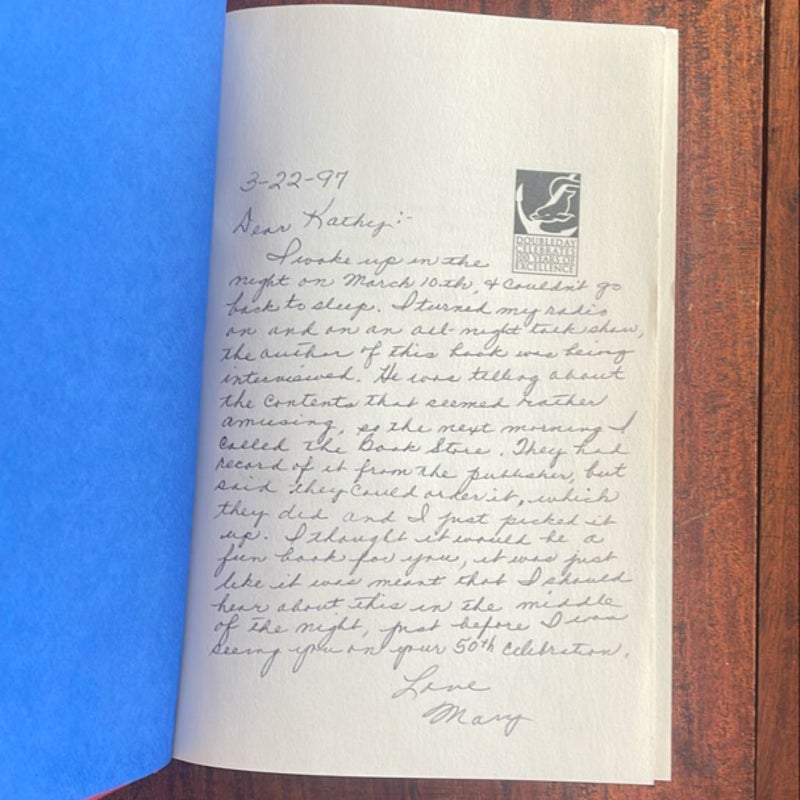 3-22-97
Dear Kathy:-
DOUBLEDAY
CELEBRATES
100 YEARS OF
EXCELLENCE
I woke up in the
night on March 10th, & couldn't go
back to sleep. I turned my radio
on and on an all-night talk show,
the author of this book was being
interviewed. He was telling about
the contents that seemed rather
amusing, so the next morning I
called the Book Store. They had
record of it from the publisher, but
said they could order it, which
they did and I just picked it
up. I thought it would be a
fun book for you, it was just
like it was meant that I should
hear about this in the middle
of the night, just before I was
seeing you on your 50th celebration.
Love
Mary